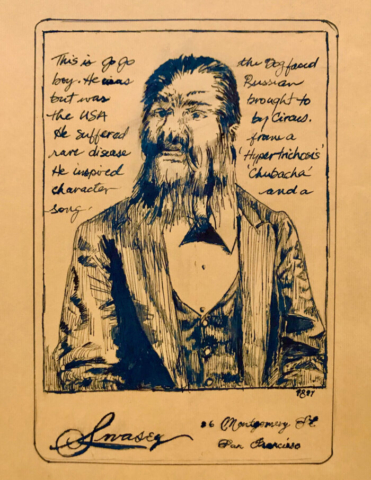 This is Jo Jo the Dog faced
boy. He was Russian
but was brought to
the USA by Circus.
He suffered from a
rare disease 'Hypertrichosis'
He inspired 'Chubacha'
character and a
song.
Swasey
26 Montgomery St.
San Francisco